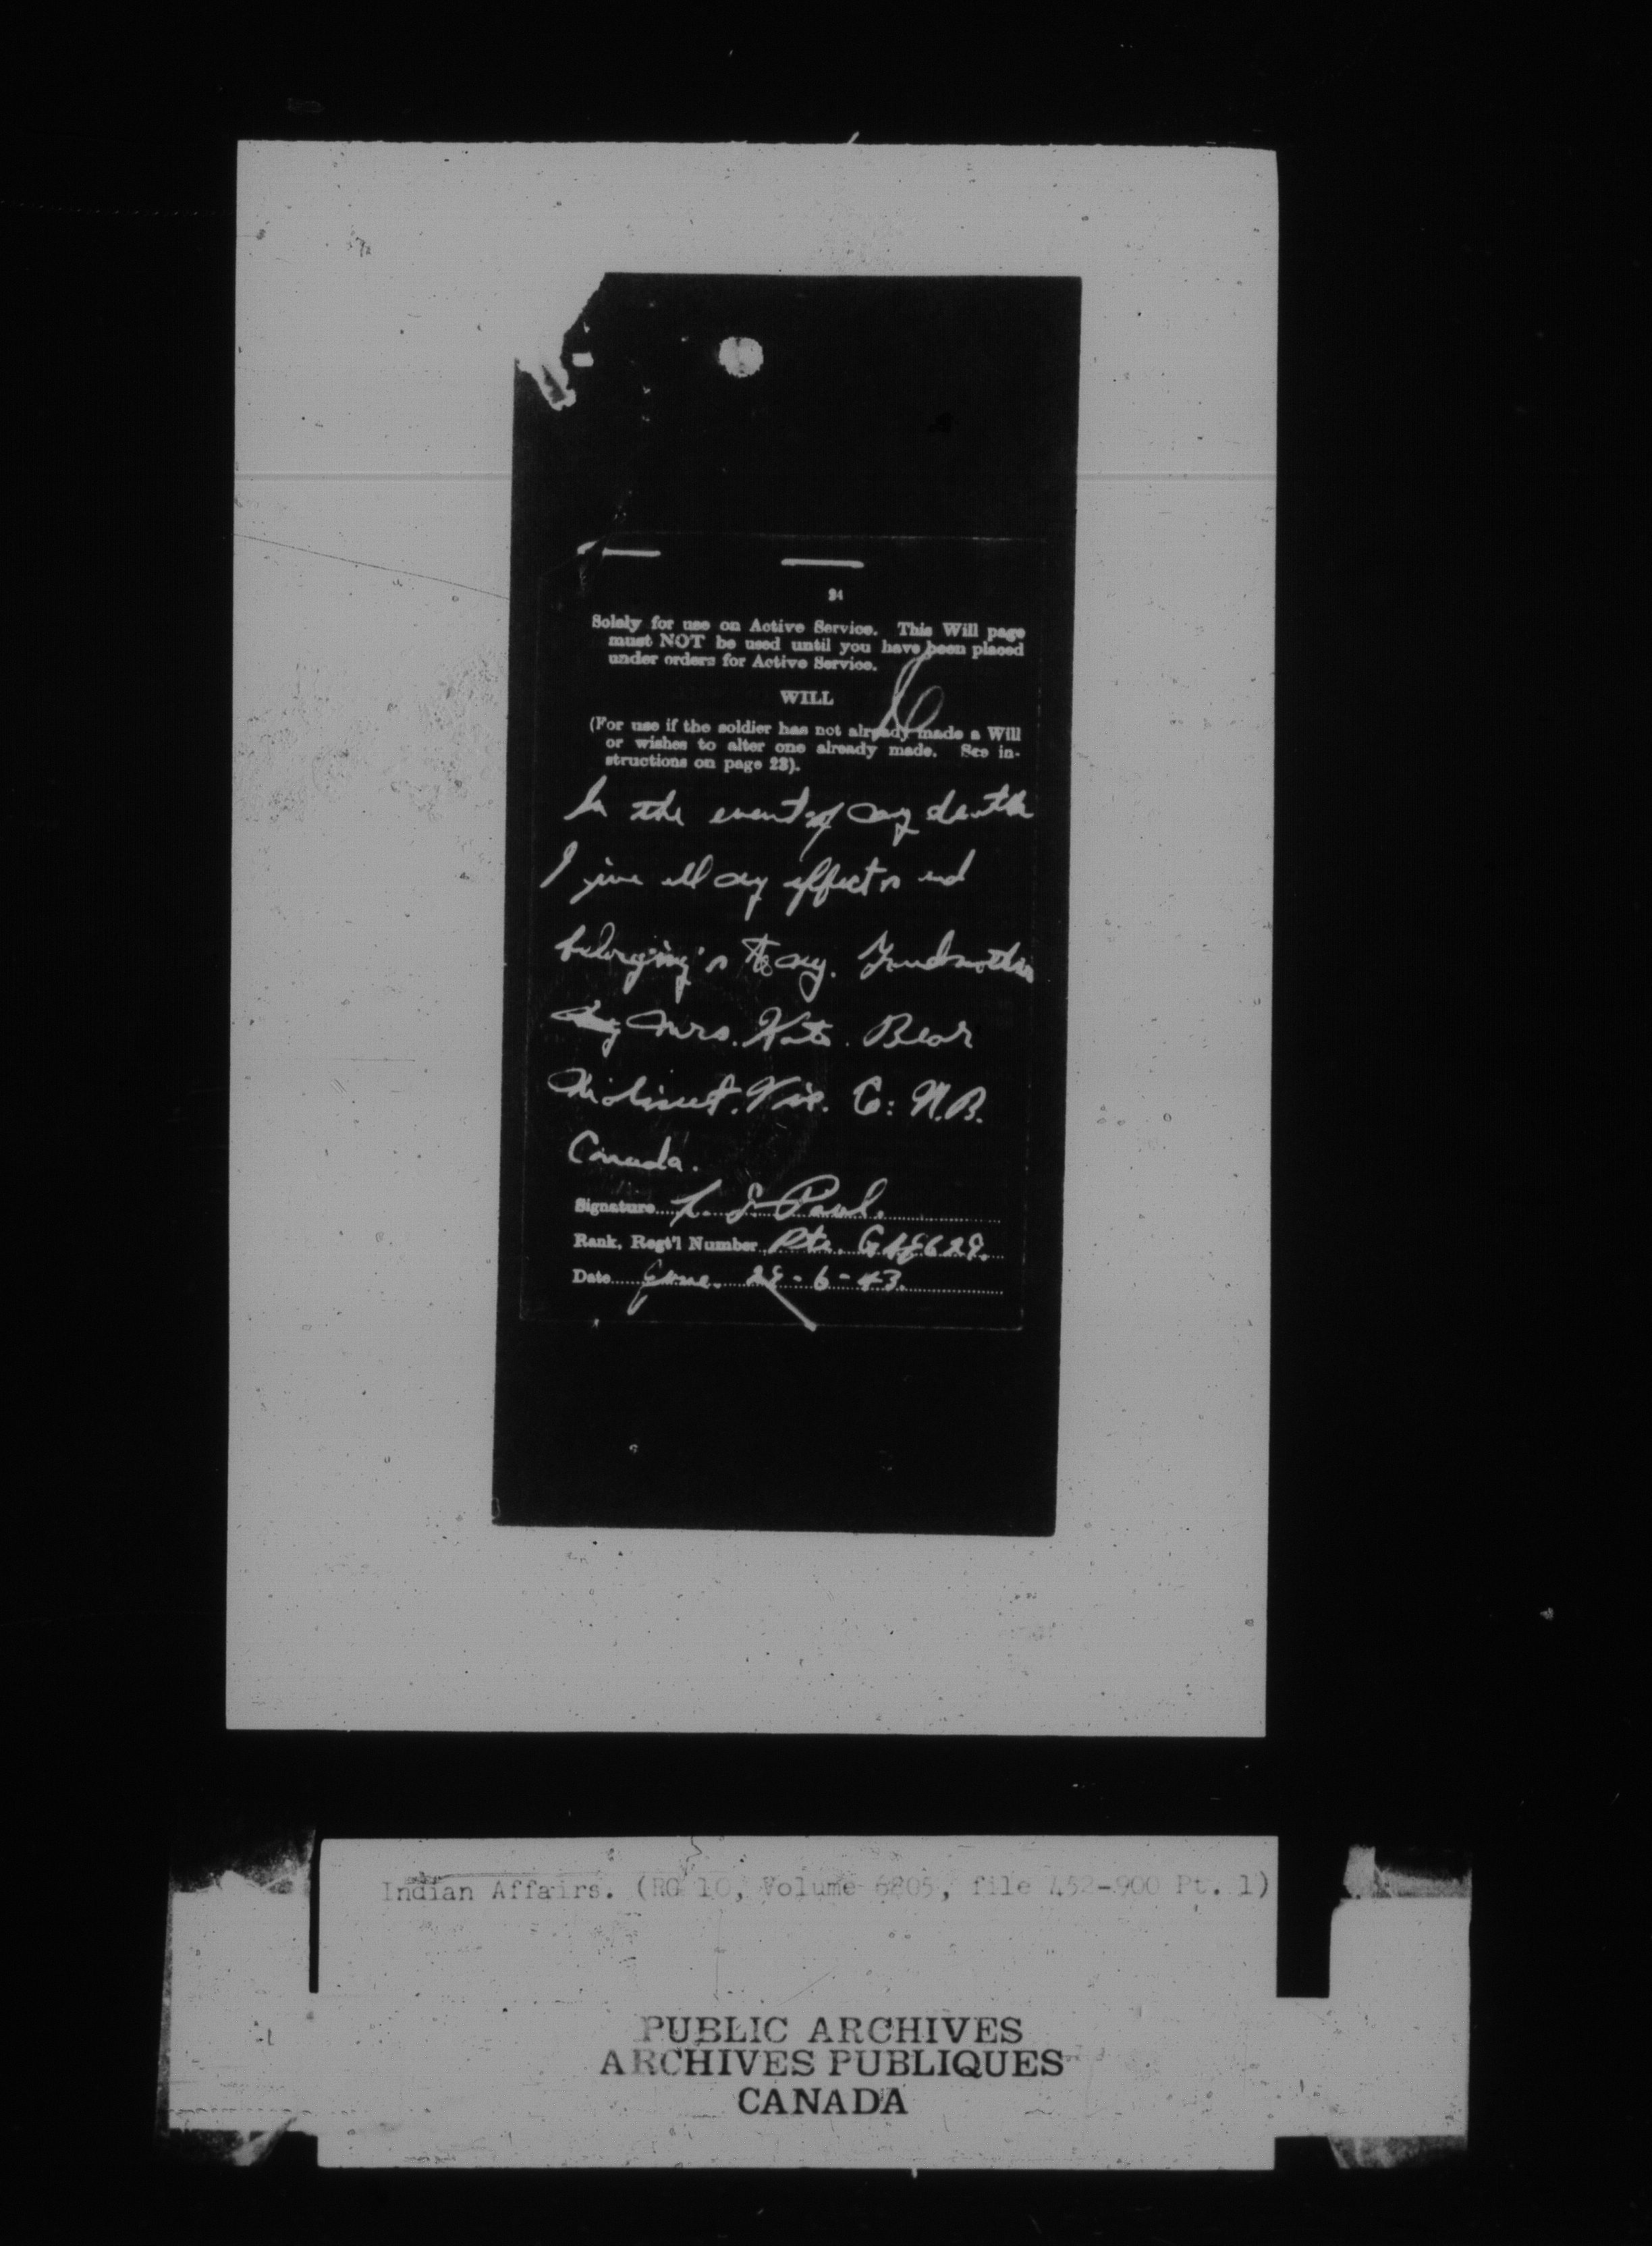 24
Solely for use on Active Service. This Will page
must NOT be used until you have been placed
under orders for Active Service.
WILL
(For use if the soldier has not already made a Will
or wishes to alter one already made. See in-
structions on page 23).
In the event of my death
I give all my effects and
belonging's to my. Grandmother
Mrs. Kate. Bear
Maliseet. Vic. Co: N.B.
Canada.
Signature L. S. Paul.
Rank, Regt'l Number Pte.
Date June. 28-6-43.
Indian Affairs. (RG 10, Volume 6805, file 452-900 Pt. 1)
PUBLIC ARCHIVES
ARCHIVES PUBLIQUES
CANADA